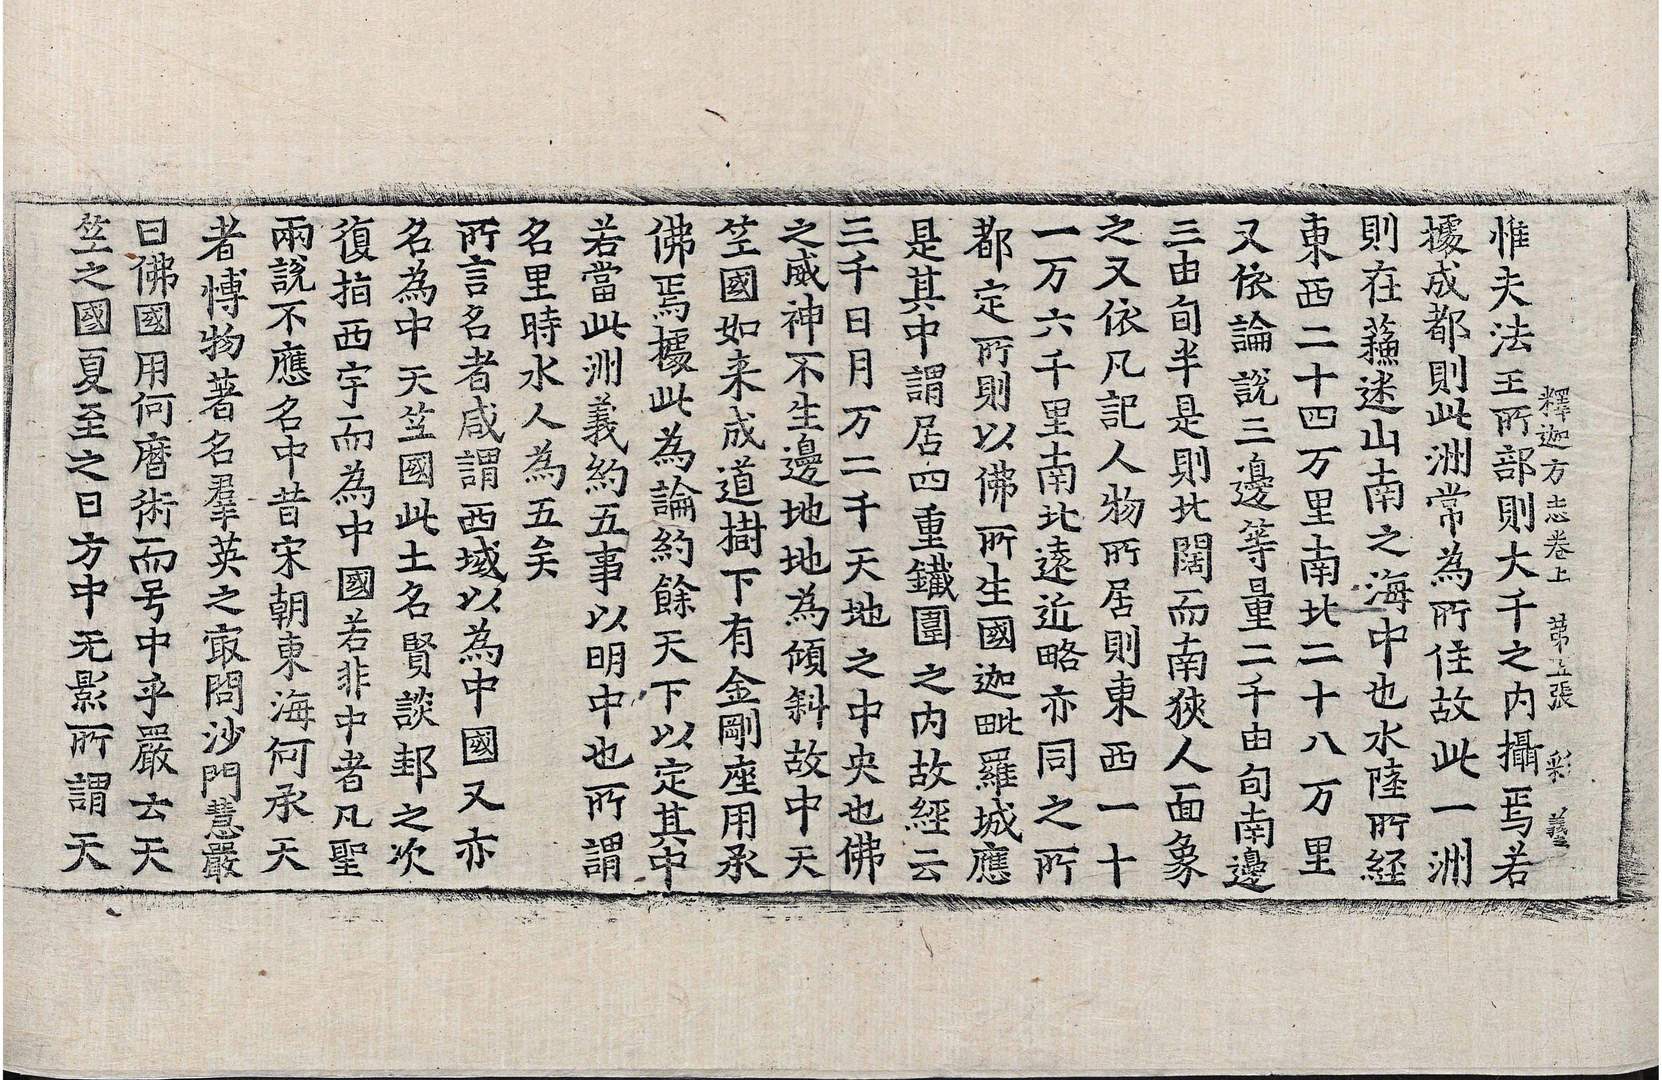 釋迦方志卷上　第五張　彩
惟夫法王所部則大千之内攝焉若
據成都則此洲常為所住故此一洲
則在蘓迷山南之海中也水陸所経
東西二十四万里南北二十八万里
又依論說三邊等量二千由旬南邊
三由旬半是則北闊而南狹人面象
之又依凡記人物所居則東西一十
一万六千里南北遠近略亦同之所
都定所則以佛所生國迦毗羅城應
是其中謂居四重鐵圍之内故經云
三千日月万二千天地之中央也佛
之威神不生邊地地為傾斜故中天
笁國如来成道樹下有金剛座用承
佛焉據此為論約餘天下以定其中
若當此洲義約五事以明中也所謂
名里時水人為五矣
所言名者咸謂西域以為中國又亦
名為中天笁國此土名賢談邦之次
復指西宇而為中國若非中者凡聖
兩說不應名中昔宋朝東海何承天
者愽物著名羣英之冣問沙門慧嚴
曰佛國用何曆術而号中乎嚴云天
笁之國夏至之日方中无影所謂天